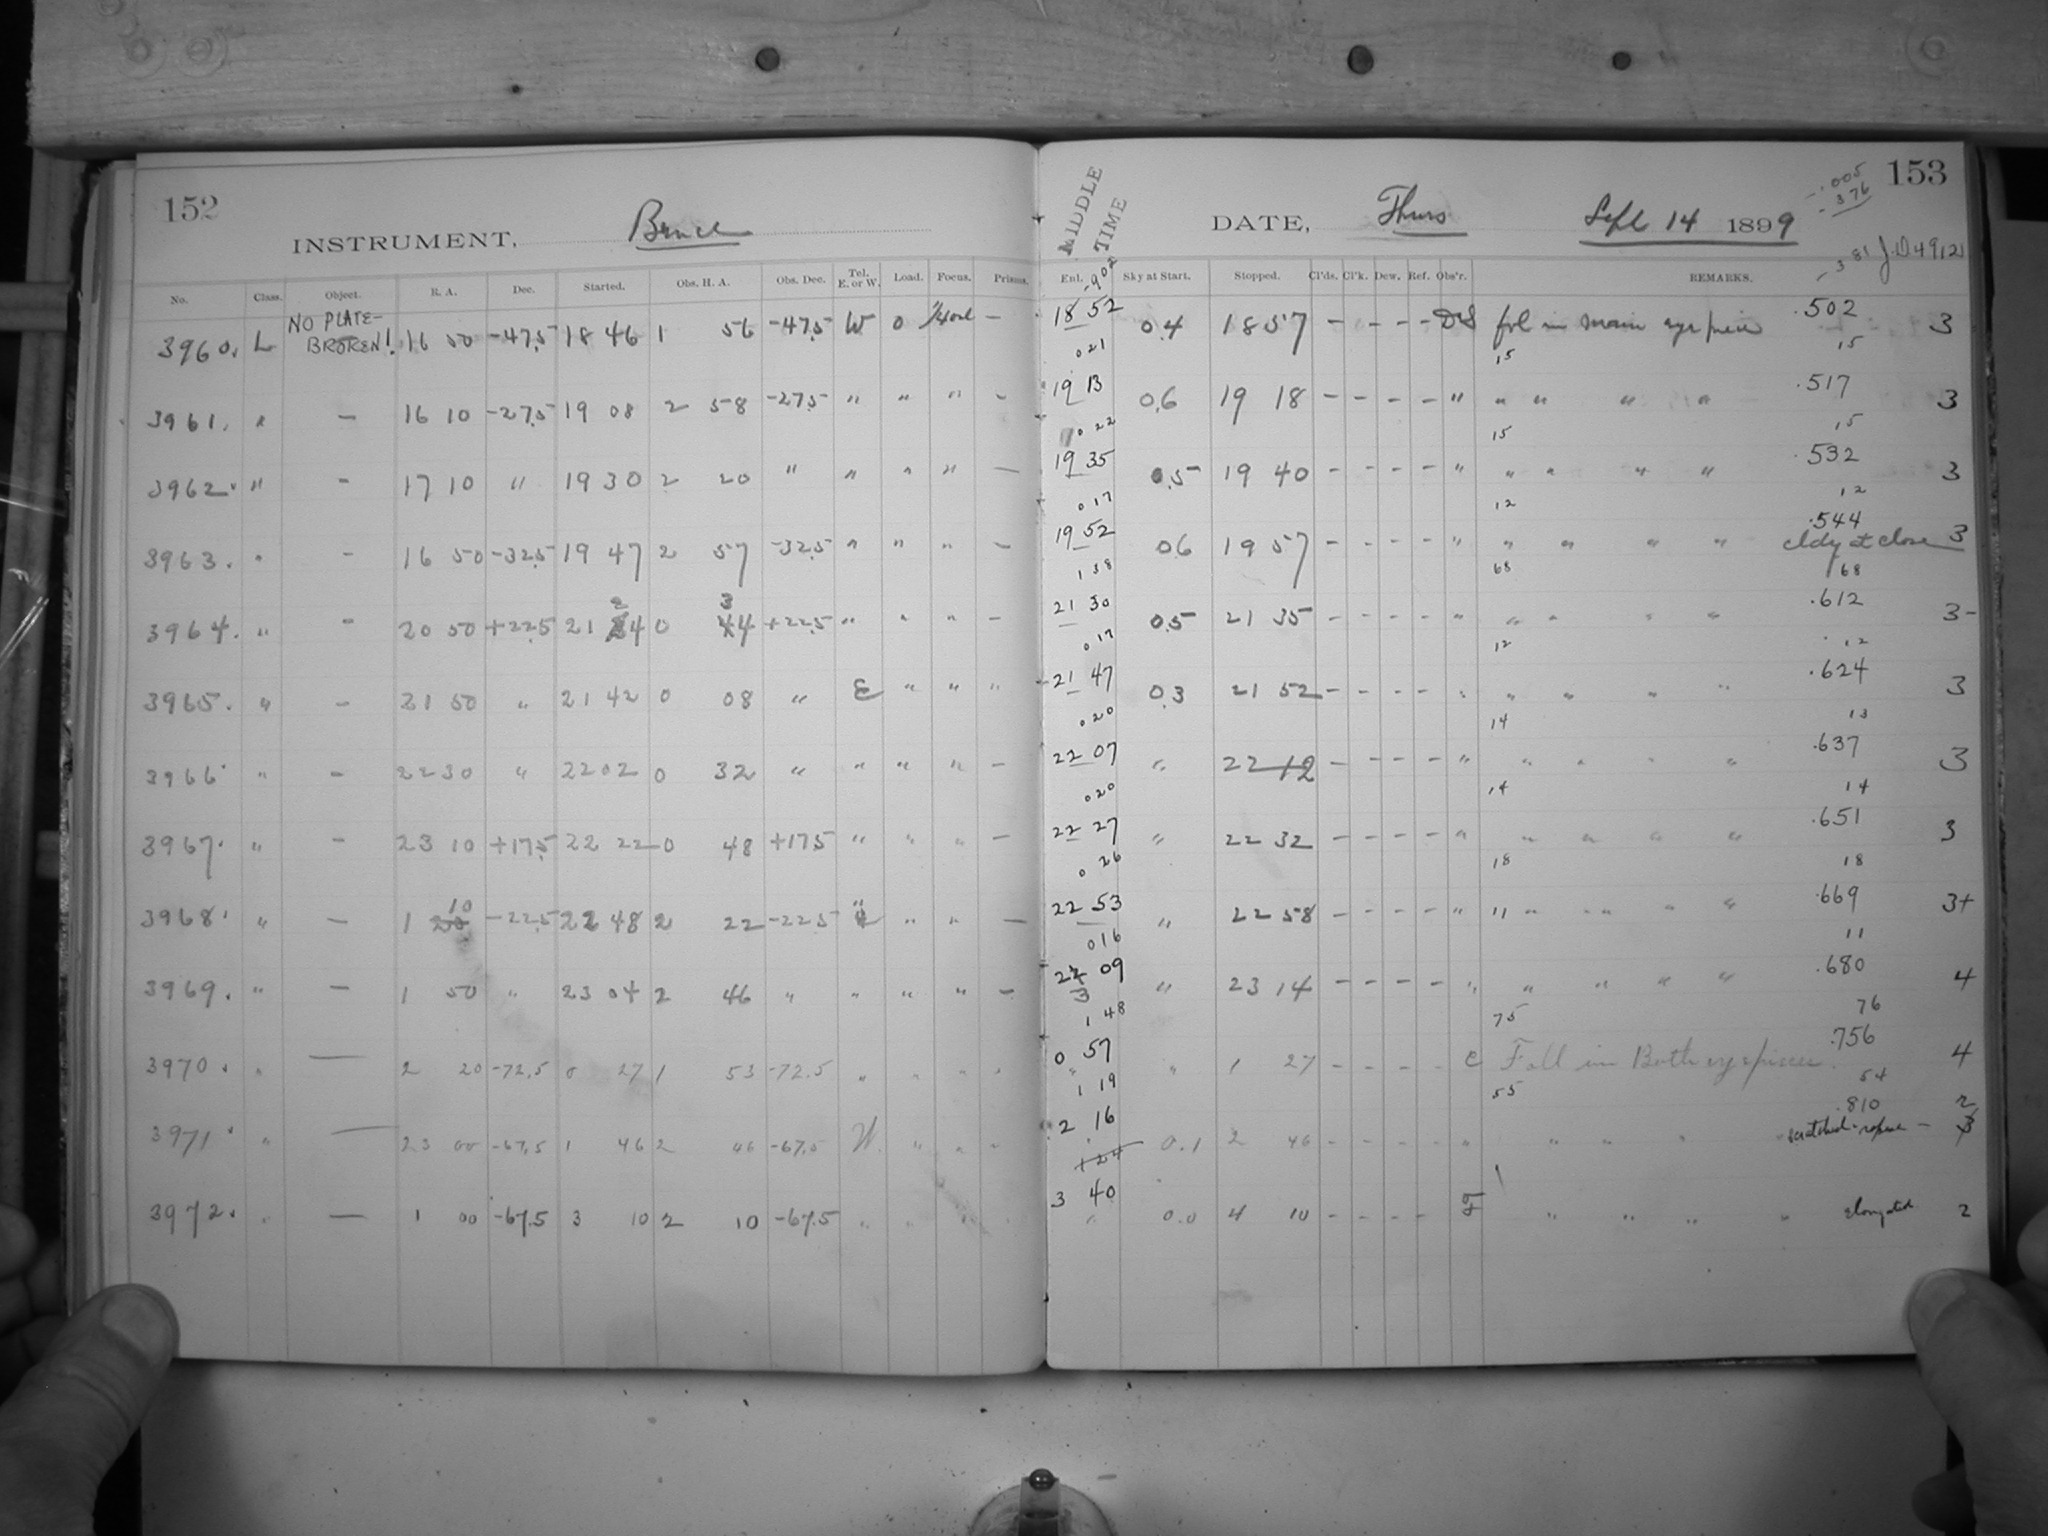 152
INSTRUMENT, Bruce
No. Class. Object. R. A. Dec. Started. Obs. H. A. Obs. Dec. Tel. E. or W. Load. Focus. Prisms.
NO PLATE-
3960. L BROKEN! 16 50 -47.5 18 46 1 56 -47.5 W 0 —
3961. " — 16 10 -27.5 19 08 2 58 -27.5 " " " —
3962. " — 17 10 " 19 30 2 20 " " " " —
3963. " — 16 50 -32.5 19 47 2 57 -32.5 " " " —
2 3
3964. " — 20 50 +22.5 21 34 0 44 +22.5 " " " —
3965. " — 21 50 " 21 42 0 08 " E " " "
3966. " — 22 30 " 22 02 0 32 " " " " —
3967. " — 23 10 +17.5 22 22 0 48 +17.5 " " " —
10
3968. " — 1 20 -22.5 22 48 2 22 -22.5 " " " —
3969. " — 1 50 " 23 04 2 46 " " " " —
3970. " — 2 20 -72.5 0 27 1 53 -72.5 " " " "
3971. " — 23 00 -67.5 1 46 2 46 -67.5 W " " "
3972. " — 1 00 -67.5 3 10 2 10 -67.5 " " " "
MIDDLE
TIME
153
-.005
-.376
-381 J.D 49121
DATE, Thurs Sept 14 1899
.902
Ent. Sky at Start. Stopped. Cl'ds. Cl'k. Dew. Ref. Obs'r. REMARKS.
18 52 0.4 18 57 - - - - fol in main eyepiece .502 3
021 15 15
19 13 0.6 19 18 - - - - " " " " " .517 3
0 22 15 15
19 35 0.5 19 40 - - - - " " " " " .532 3
0 17 12 12
.544
19 52 0.6 19 57 - - - - " " " " " cldy at close 3
1 38 68 68
21 30 0.5 21 35 - - - - " " " " " .612 3-
0 17 12 12
21 47 0.3 21 52 - - - - " " " " " .624 3
0 20 14 13
22 07 " 22 12 - - - - " " " " " .637 3
0 20 14 14
22 27 " 22 32 - - - - " " " " " .651 3
0 26 18 18
22 53 " 22 58 - - - - " " " " " .669 3+
016 11
22 09 " 23 14 - - - - " " " " " .680 4
3
1 48 75 76
0 57 " 1 27 - - - - C Foll in Both eyepieces. .756 4
1 19 55 54
.810 2
2 16 0.1 2 46 - - - - " " " " " scratched - 3
1 24
3 40 " 0.0 4 10 - - - - F " " " " elongated 2